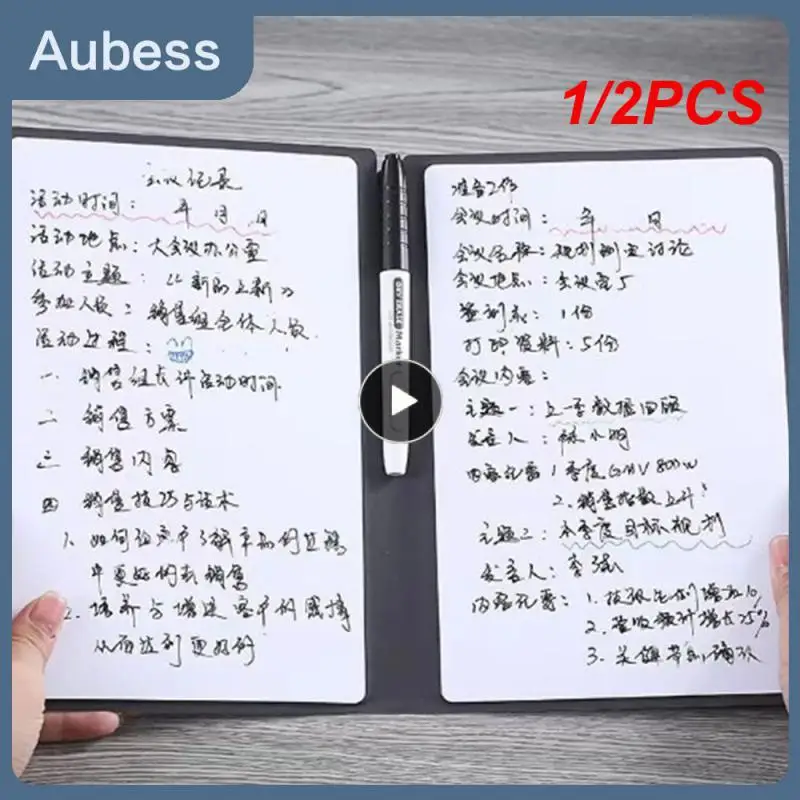 Aubess
1/2PCS
会议记录
活动时间： 年 月 日
活动地点：大会议办公室
活动主题：
参加人员：销售组全体人员
活动过程：
一 销售组长讲活动时间
二 销售方案
三 销售内容
四 销售技巧与话术
1、如何
中更好的去销售
2.培养与增进客户的感情
从而达到更好的
DRY ERASE Marker
准备工作
会议时间： 年 月
会议名称：规划制定讨论
会议地点：会议室5
签到表：1份
打印资料：5份
会议内容：
主题一：上一季数据回顾
发言人：林小明
内容记要 1.季度GMV 800W
2.销售指数上升
主题二：本季度目标规划
发言人：李强
内容记要：1.
2.营收预计增长25%
3.